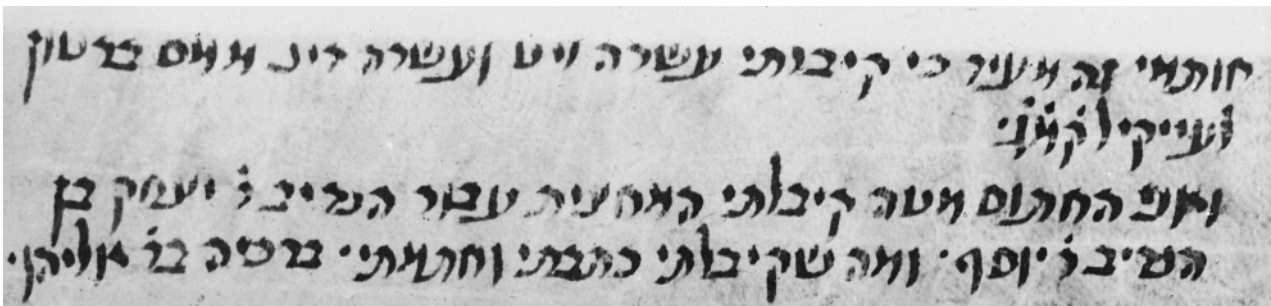 חותמי זה מעיד כי קיבלתי עשרה ליט ועשרה דינ ממס ברטון
ואני החתום מטה קיבלתי המחצית עבור הנדיב ר' יצחק בן
הנדיב ר' יוסף. ומה שקיבלתי כתבתי וחתמתי. ברכיה בר אליהו.